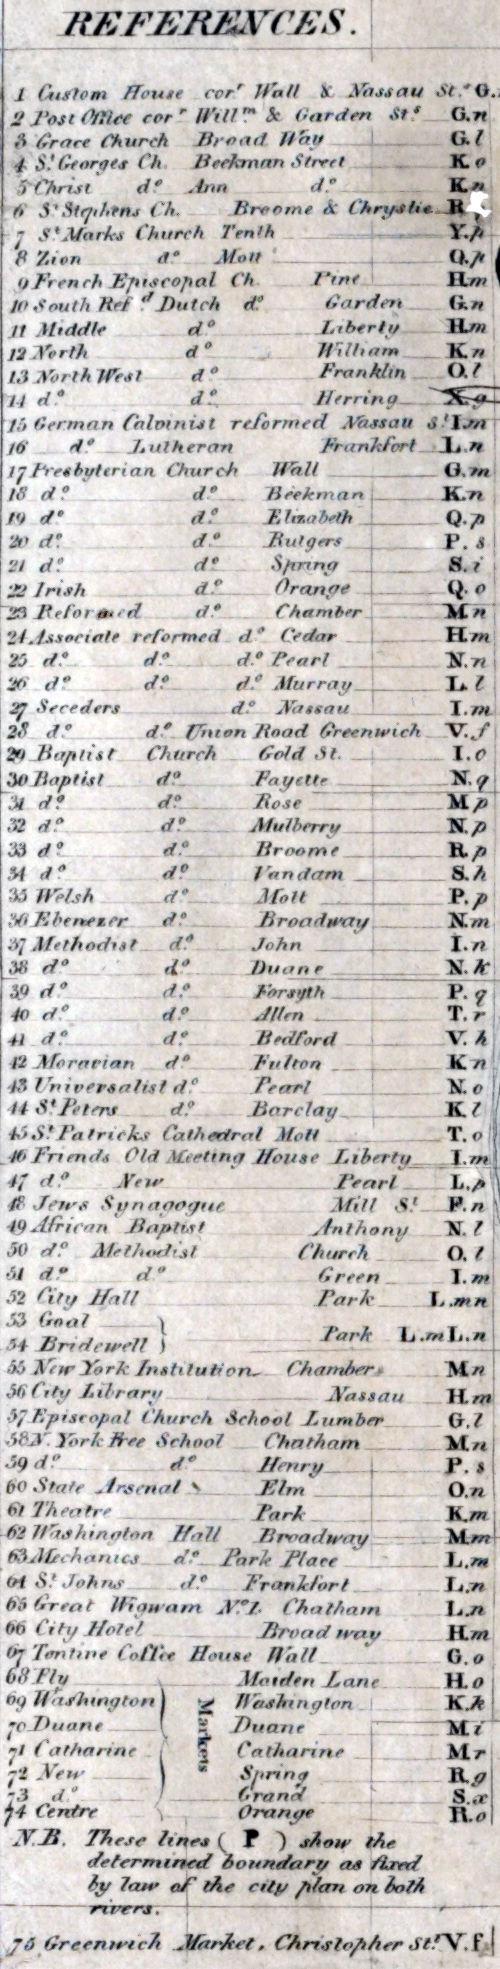 REFERENCES.
1 Custom House cor.r Wall & Nassau St.s G.
2 Post Office cor.r Will.m & Garden St.s G.n
3 Grace Church Broad Way G.l
4 St. Georges Ch. Beekman Street K.o
5 Christ d.o Ann d.o K.n
6 St. Stephens Ch. Broome & Chrystie R
7 St. Marks Church Tenth Y.p
8 Zion d.o Mott Q.p
9 French Episcopal Ch. Pine H.m
10 South Ref.d Dutch d.o Garden G.n
11 Middle d.o Liberty H.m
12 North d.o William K.n
13 North West d.o Franklin O.l
14 d.o d.o Herring X.g
15 German Calvinist reformed Nassau s.t I.m
16 d.o Lutheran Frankfort L.n
17 Presbyterian Church Wall G.m
18 d.o d.o Beekman K.n
19 d.o d.o Elizabeth Q.p
20 d.o d.o Rutgers P.s
21 d.o d.o Spring S.i
22 Irish d.o Orange Q.o
23 Reformed d.o Chamber M.n
24 Associate reformed d.o Cedar H.m
25 d.o d.o d.o Pearl N.n
26 d.o d.o d.o Murray L.l
27 Seceders d.o Nassau I.m
28 d.o d.o Union Road Greenwich V.f
29 Baptist Church Gold St. I.o
30 Baptist d.o Fayette N.q
31 d.o d.o Rose M p
32 d.o d.o Mulberry N.p
33 d.o d.o Broome R.p
34 d.o d.o Vandam S.h
35 Welsh d.o Mott P.p
36 Ebenezer d.o Broadway N.m
37 Methodist d.o John I.n
38 d.o d.o Duane N.k
39 d.o d.o Forsyth P.q
40 d.o d.o Allen T.r
41 d.o d.o Bedford V.h
42 Moravian d.o Fulton K n
43 Universalist d.o Pearl N.o
44 St. Peters d.o Barclay K.l
45 St. Patricks Cathedral Mott T.o
46 Friends Old Meeting House Liberty I.m
47 d.o New Pearl L.p
48 Jews Synagogue Mill St. F.n
49 African Baptist Anthony N.l
50 d.o Methodist Church O.l
51 d.o d.o Green I.m
52 City Hall Park L.mn
53 Goal
54 Bridewell } Park L.m L.n
55 New York Institution Chambers M n
56 City Library Nassau H.m
57 Episcopal Church School Lumber G.l
58 N. York Free School Chatham M n
59 d.o d.o Henry P.s
60 State Arsenal Elm O.n
61 Theatre Park K.m
62 Washington Hall Broadway M.m
63 Mechanics d.o Park Place L.m
64 St. Johns d.o Frankfort L.n
65 Great Wigwam No.1. Chatham L.n
66 City Hotel Broad way H.m
67 Tontine Coffee House Wall G.o
68 Fly Maiden Lane H.o
69 Washington Washington K.k
70 Duane Duane M.i
71 Catharine Markets Catharine M r
72 New Spring R.g
73 d.o Grand S.x
74 Centre Orange R.o
N.B. These lines ( P ) show the
determined boundary as fixed
by law of the city plan on both
rivers.
75 Greenwich Market, Christopher St. V.f